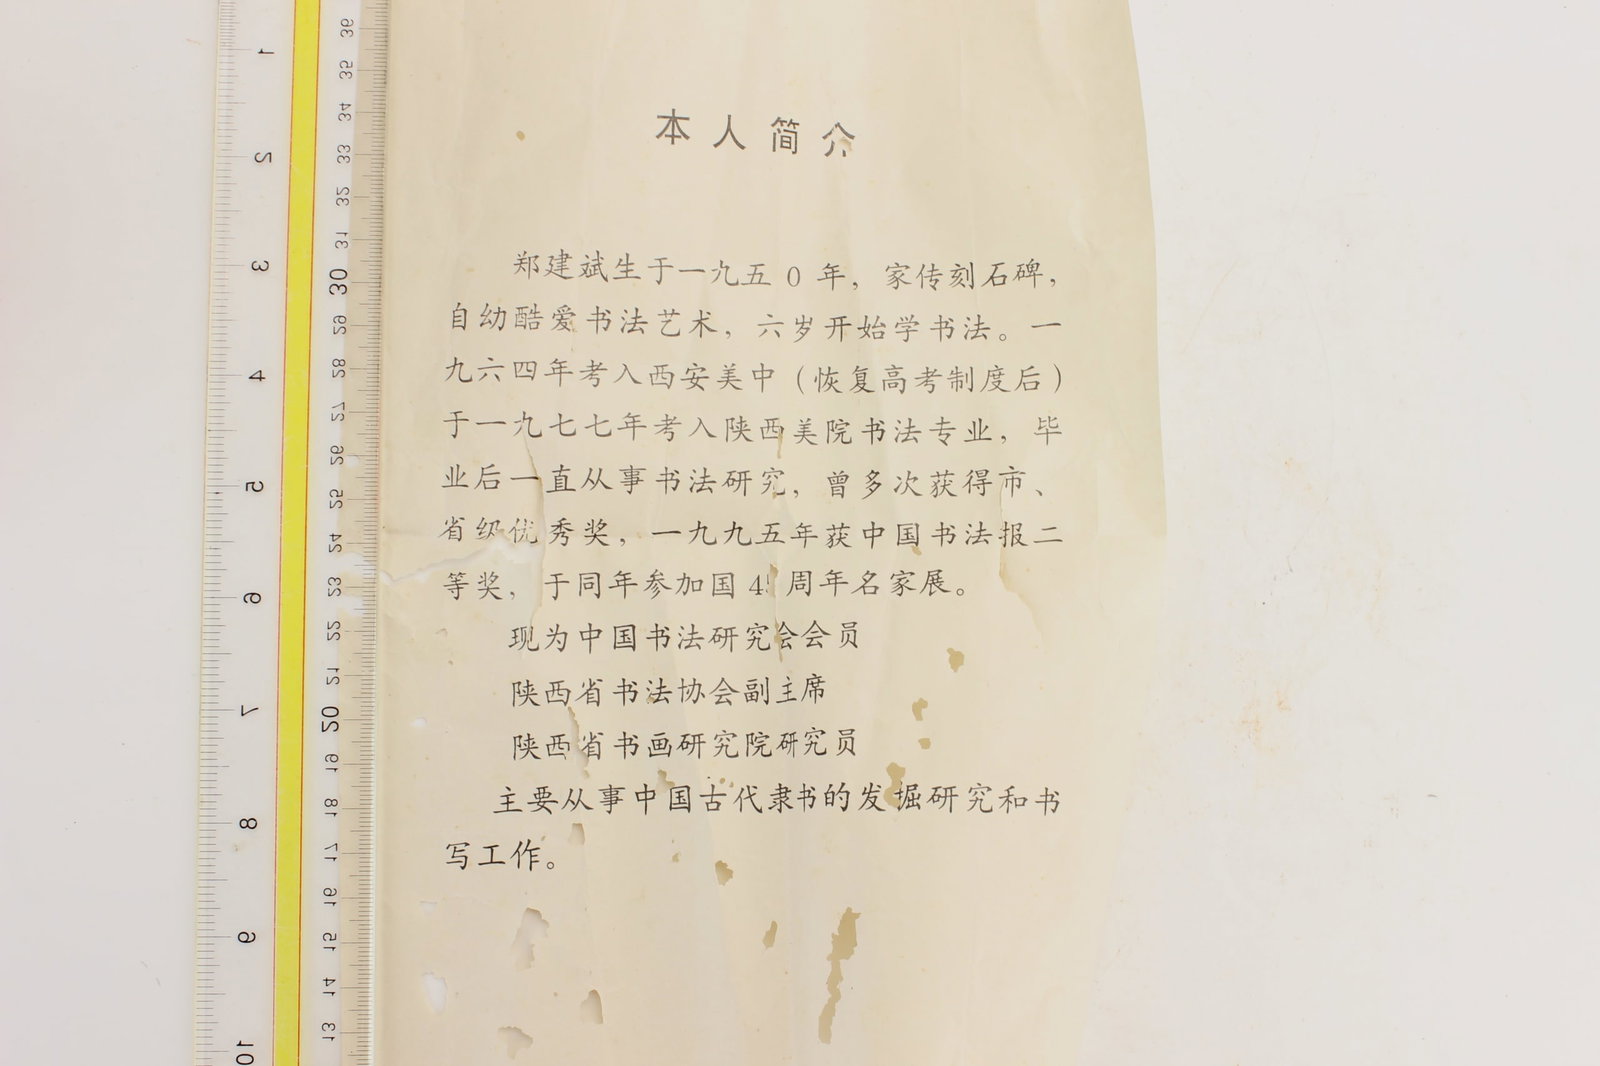 本人简介
郑建斌生于一九五0年，家传刻石碑，
自幼酷爱书法艺术，六岁开始学书法。一
九六四年考入西安美中（恢复高考制度后）
于一九七七年考入陕西美院书法专业，毕
业后一直从事书法研究，曾多次获得市、
省级优秀奖，一九九五年获中国书法报二
等奖，于同年参加国45周年名家展。
现为中国书法研究会会员
陕西省书法协会副主席
陕西省书画研究院研究员
主要从事中国古代隶书的发掘研究和书
写工作。
1
2
3
4
5
6
7
8
9
10
36
35
34
33
32
31
30
29
28
27
26
25
24
23
22
21
20
19
18
17
16
15
14
13